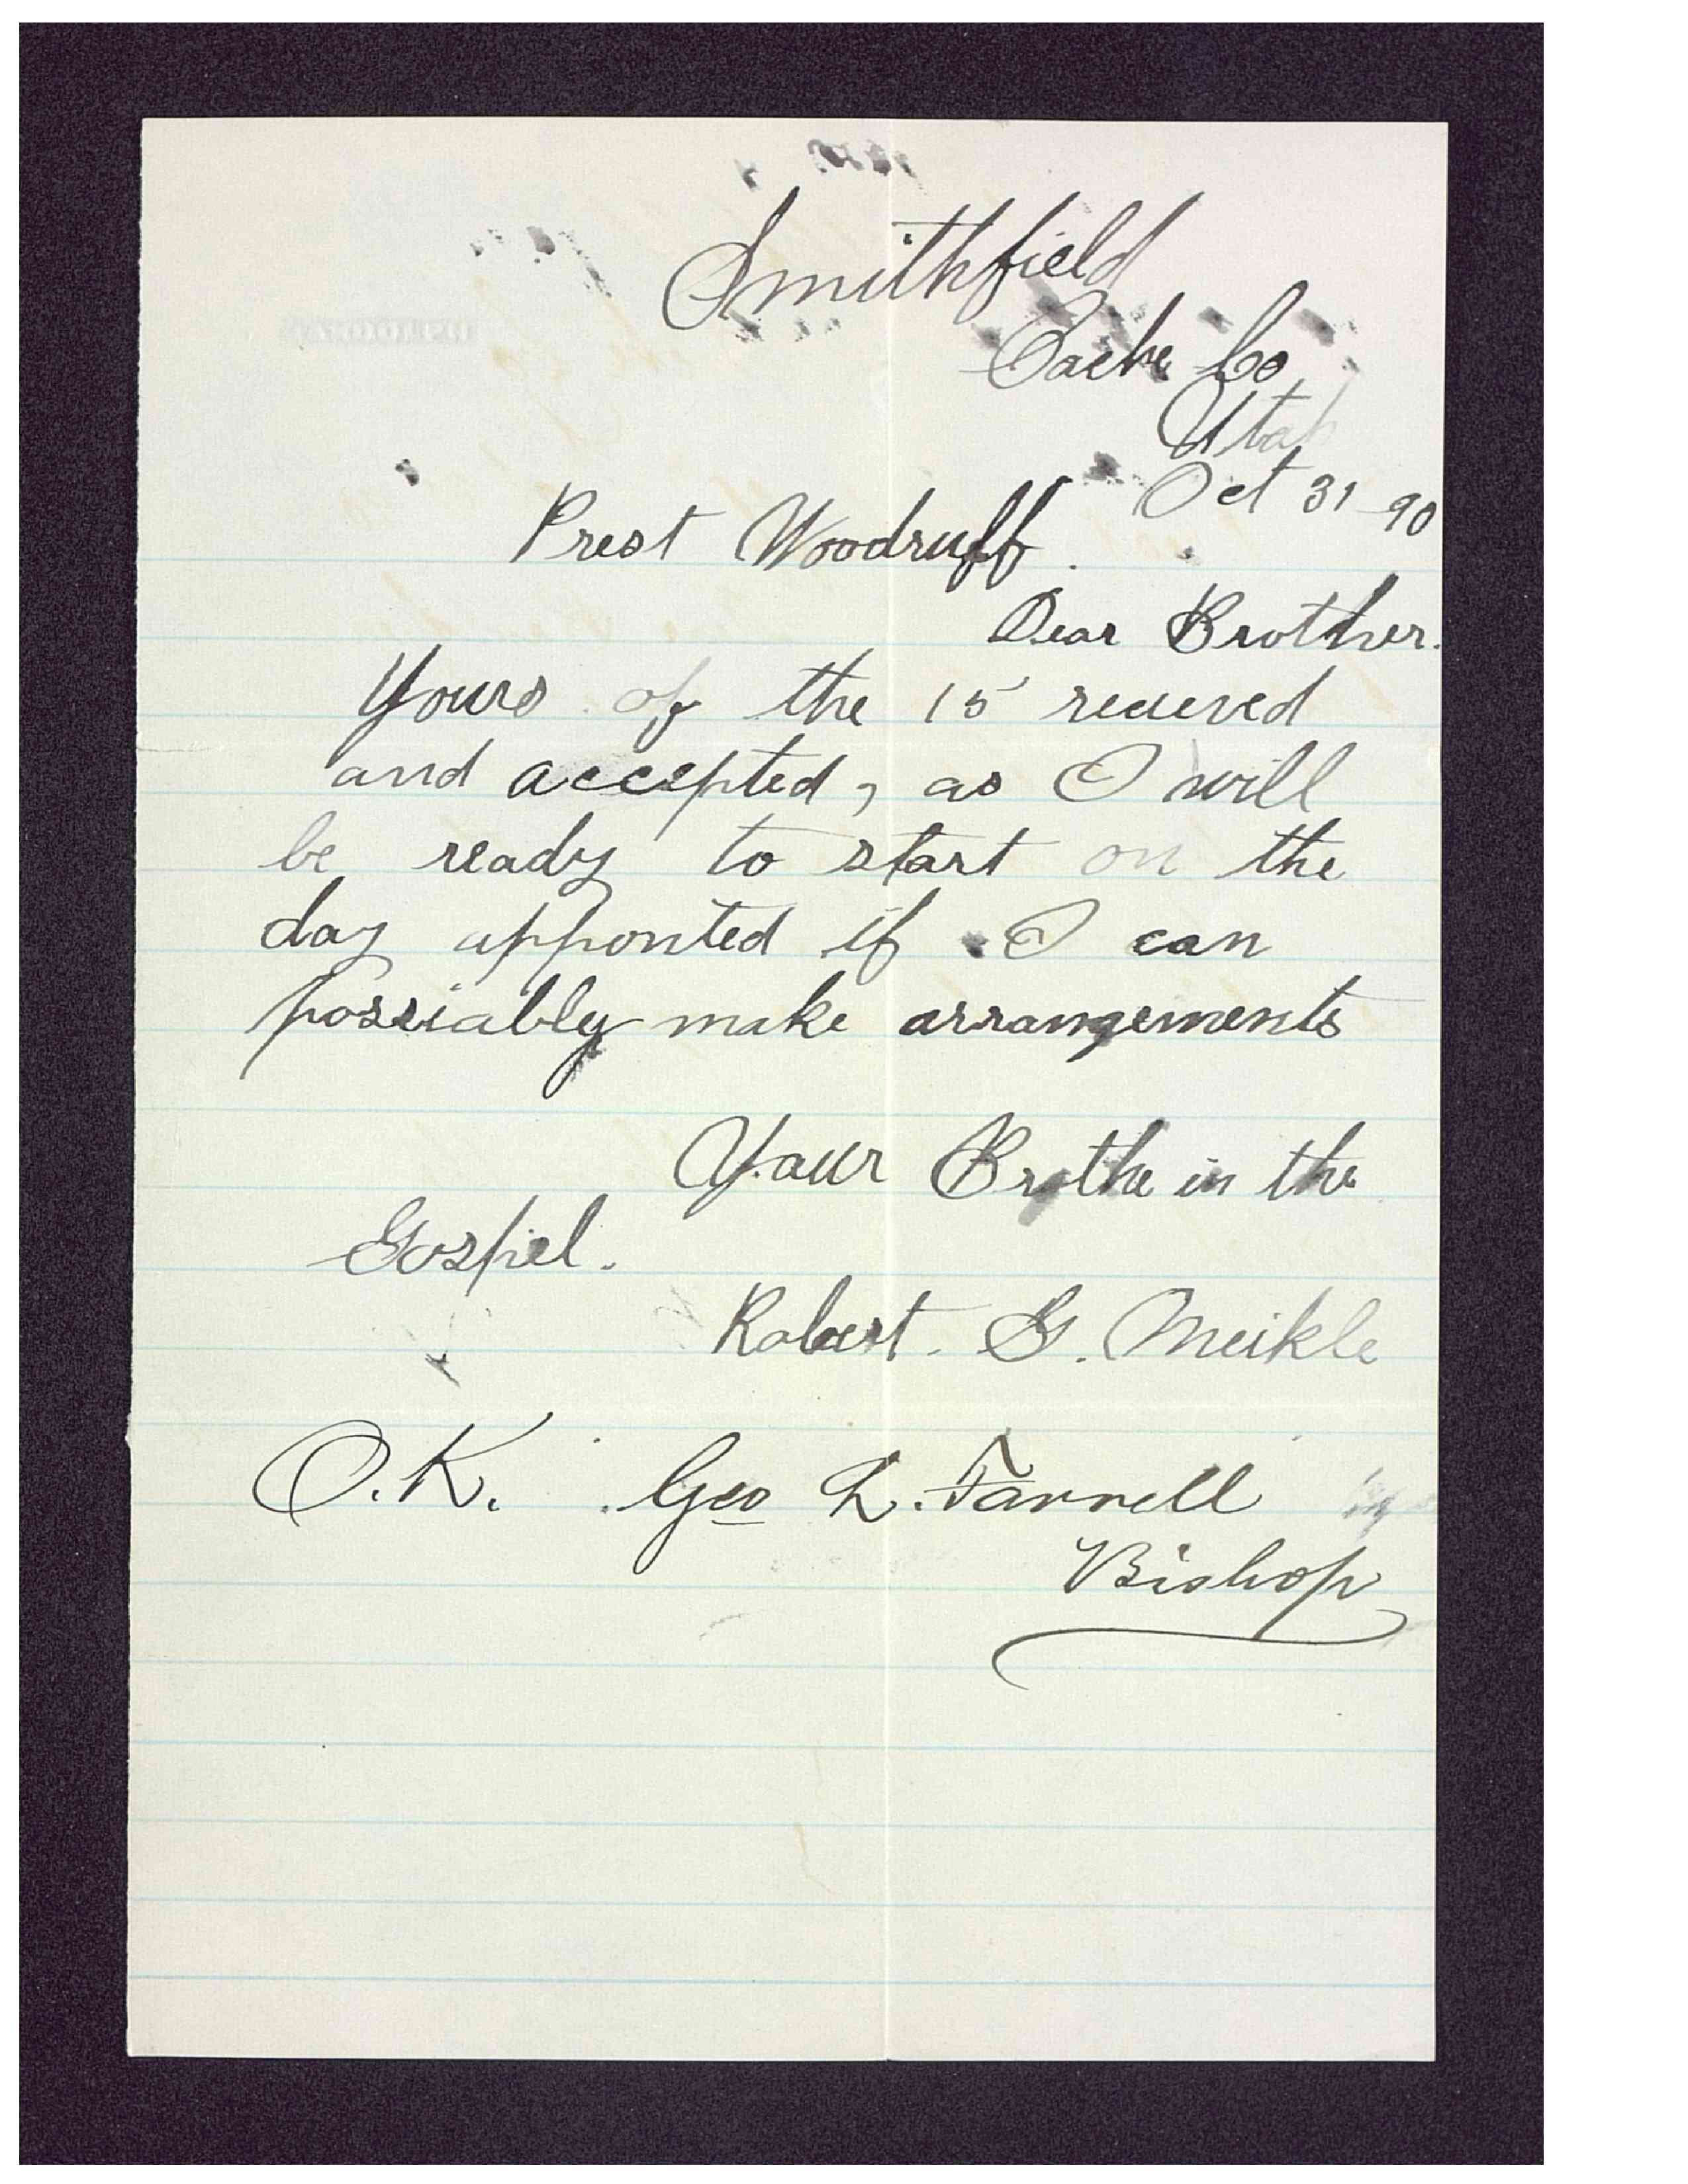 Smithfield
Cache Co
Utah
Oct 31 90
Prest Woodruff.
Dear Brother.
Yours of the 15 recieved
and accepted, as I will
be ready to start on the
day apponted if I can
possiably make arrangements
Your Brothe in the
Gospel.
Robert. G. Meikle
O.K. Geo L. Farrell
Bishop